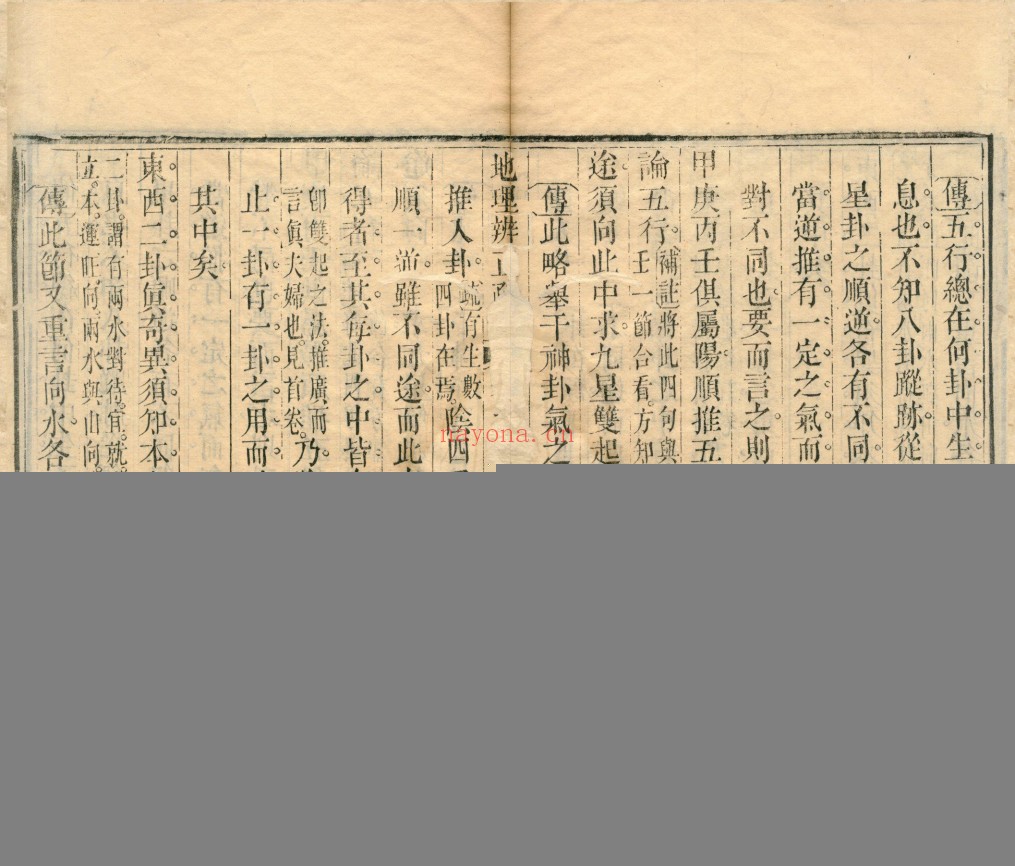 傳五行總在何卦中生
息也不知八卦蹤跡從
星卦之順逆各有不同
當逆推有一定之氣而
對不同也要而言之則
甲庚丙壬俱屬陽順推五
論五行補註將此四句與
壬一節合看方知
途須向此中求九星雙起
傳此略舉干神卦氣之
地理辨正疏
推入卦疏有生數
四卦在焉陰四
順一逆雖不同途而此
得者至其每卦之中皆
卽雙起之法推廣而
言眞夫婦也見首卷乃
止一卦有一卦之用而
其中矣
東西二卦眞奇異須知本
二卦謂有兩水對待宜就
立本運旺向兩水與山向
傳此節又重言向水各
nayona.cn